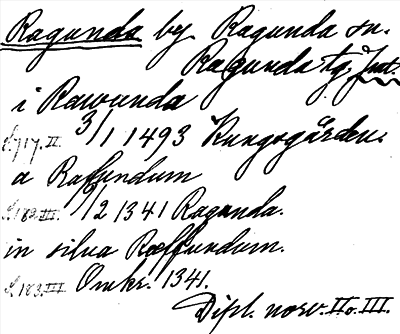 Ragunda by Ragunda sn.
Ragunda tg. Jmt.
i Rawunda
S. 717. II. 3/1 1493 Kungsgården.
a Raffundum
S. 182. III. 6/2 1341 Ragunda.
in silua Ræffundum.
S. 183. III Omkr. 1341.
Dipl. norv. II o. III.